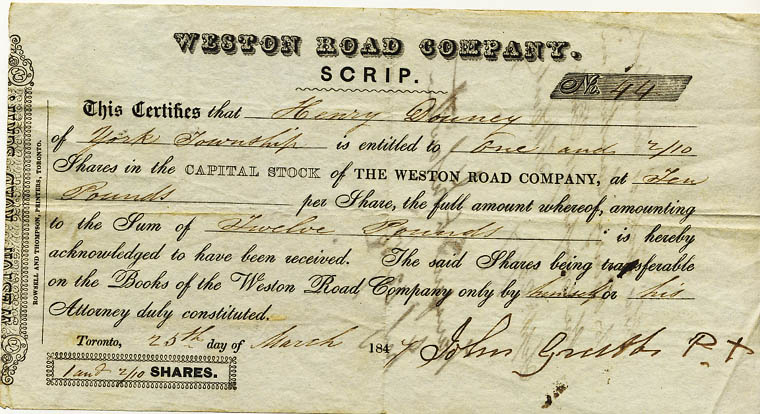 WESTON ROAD COMPANY.
SCRIP.
No. 44
This Certifies that Henry Downey
of York Township is entitled to One and 2/10
Shares in the CAPITAL STOCK of THE WESTON ROAD COMPANY, at Ten
Pounds per Share, the full amount whereof, amounting
to the Sum of Twelve Pounds is hereby
acknowledged to have been received. The said Shares being transferable
on the Books of the Weston Road Company only by himself or his
Attorney duly constituted.
Toronto, 25th day of March 184 John Grubb
1 and 2/10 SHARES.
WESTON ROAD SCRIP
ROWSELL AND THOMPSON, PRINTERS, TORONTO.